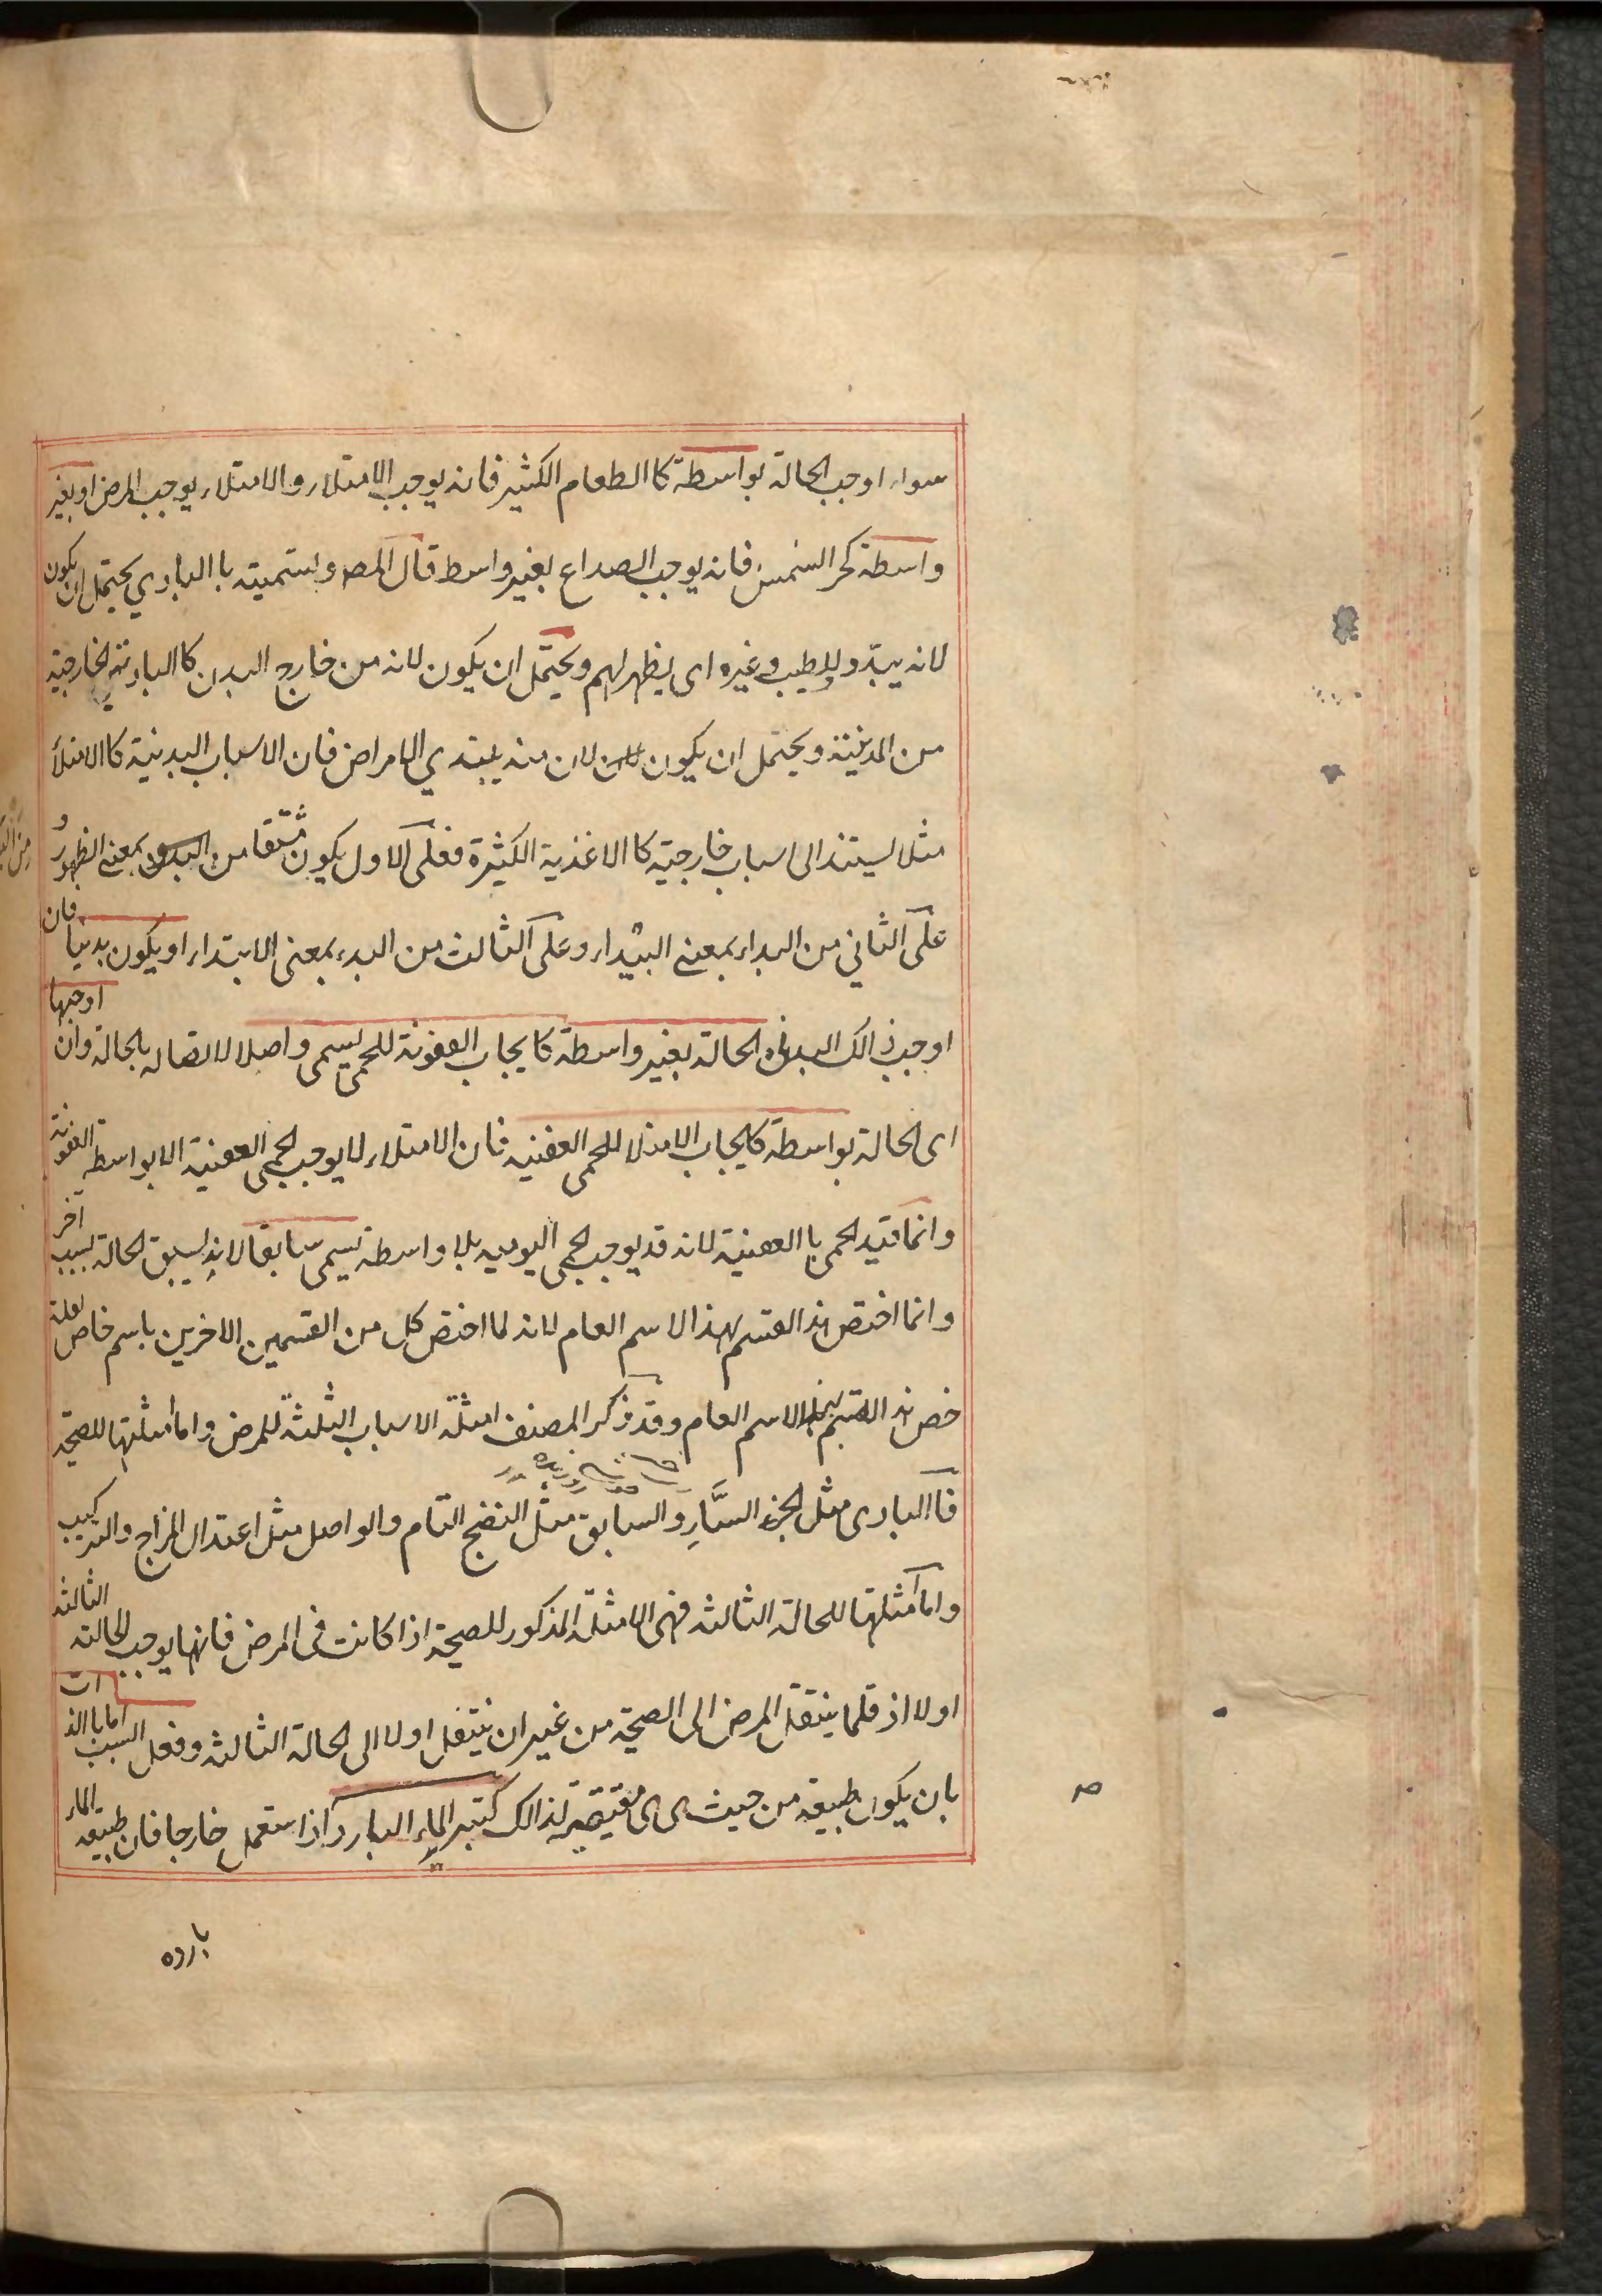 سواء اوجب الحالة بواسطة كا الطعام الكثير فانه يوجب الامتلاء والامتلاء يوجب المرض او بغير
واسطة كحر الشمس فانه يوجب الصداع بغير واسط قال المصـ وتسميته با البادي يحتمل ان يكون
لانه يبدو للطبيب وغيره اى يظهر لهم ويحتمل ان يكون لانه من خارج البدن كا البادية الخارجية
من المدينة ويحتمل ان يكون لان منه يبتدي الامراض فان الاسباب البدنية كا الامتلأ
مثلا يستند الى اسباب خارجية كا الاغذية الكثيرة فعلى الاول يكون مشتقا من البدو بمعنى الظهور و
على الثاني من البداء بمعنى البيداء وعلى الثالث من البدء بمعنى الابتداء او يكون بدنيا فان
اوجب ذالك البدنى الحالة بغير واسطة كايجاب العفونة للحمى يسمى واصلا لاتصاله بالحالة وان اوجبها
اى الحالة بواسطة كايجاب الامتلا للحمى العفنيه فان الامتلاء لا يوجب الحمى العفنية الا بواسطه العفونة
وانما قيد الحمى با العفنية لانه قد يوجب الحمى اليوميه بلا واسطه يسمى سابقا لانه يسبق الحالة بسبب آخر
وانما اختص هذا القسم بهذا الاسم العام لانه لما اختص كل من القسمين الاخرين باسم خاص لعلة
خص هذا القسم بهذا الاسم العام وقد ذكر المصنف امثلة الاسباب الثلثة للمرض واما امثلتها للصحة
فا البادى مثل الخبر السّارِ والسابق مثل النضج التام والواصل مثل اعتدال المزاج والتركيب
واما امثلتها للحالة الثالثه فهى الامثلة المذكور للصحة اذا كانت فى المرض فانها يوجب الحالة الثالثه
اولا اذ قلما ينتقل المرض الى الصحة من غير ان ينتقل اولا الى الحالة الثالثه وفعل السبب اما با الذات
بان يكون طبيعه من حيث هى هى مقتضية لذالك كتبريد الماء البارد اذا استعمل خارجا فان طبيعه الماء
بارده